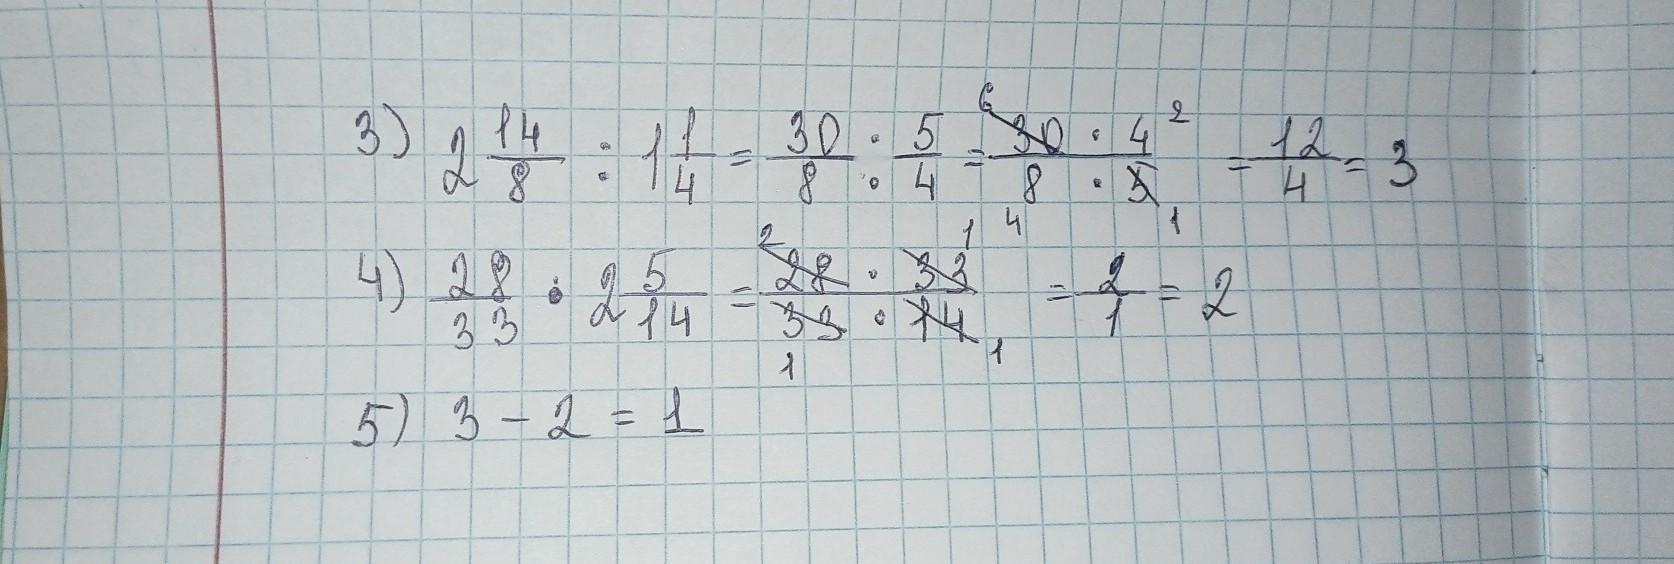 3) 2 14/8 : 1 1/4 = 30/8 : 5/4 = 30 6 · 4 2 / 8 4 · 5 1 = 12/4 = 3
4) 28/33 · 2 5/14 = 28 2 · 33 1 / 33 1 · 14 1 = 2/1 = 2
5) 3 - 2 = 1